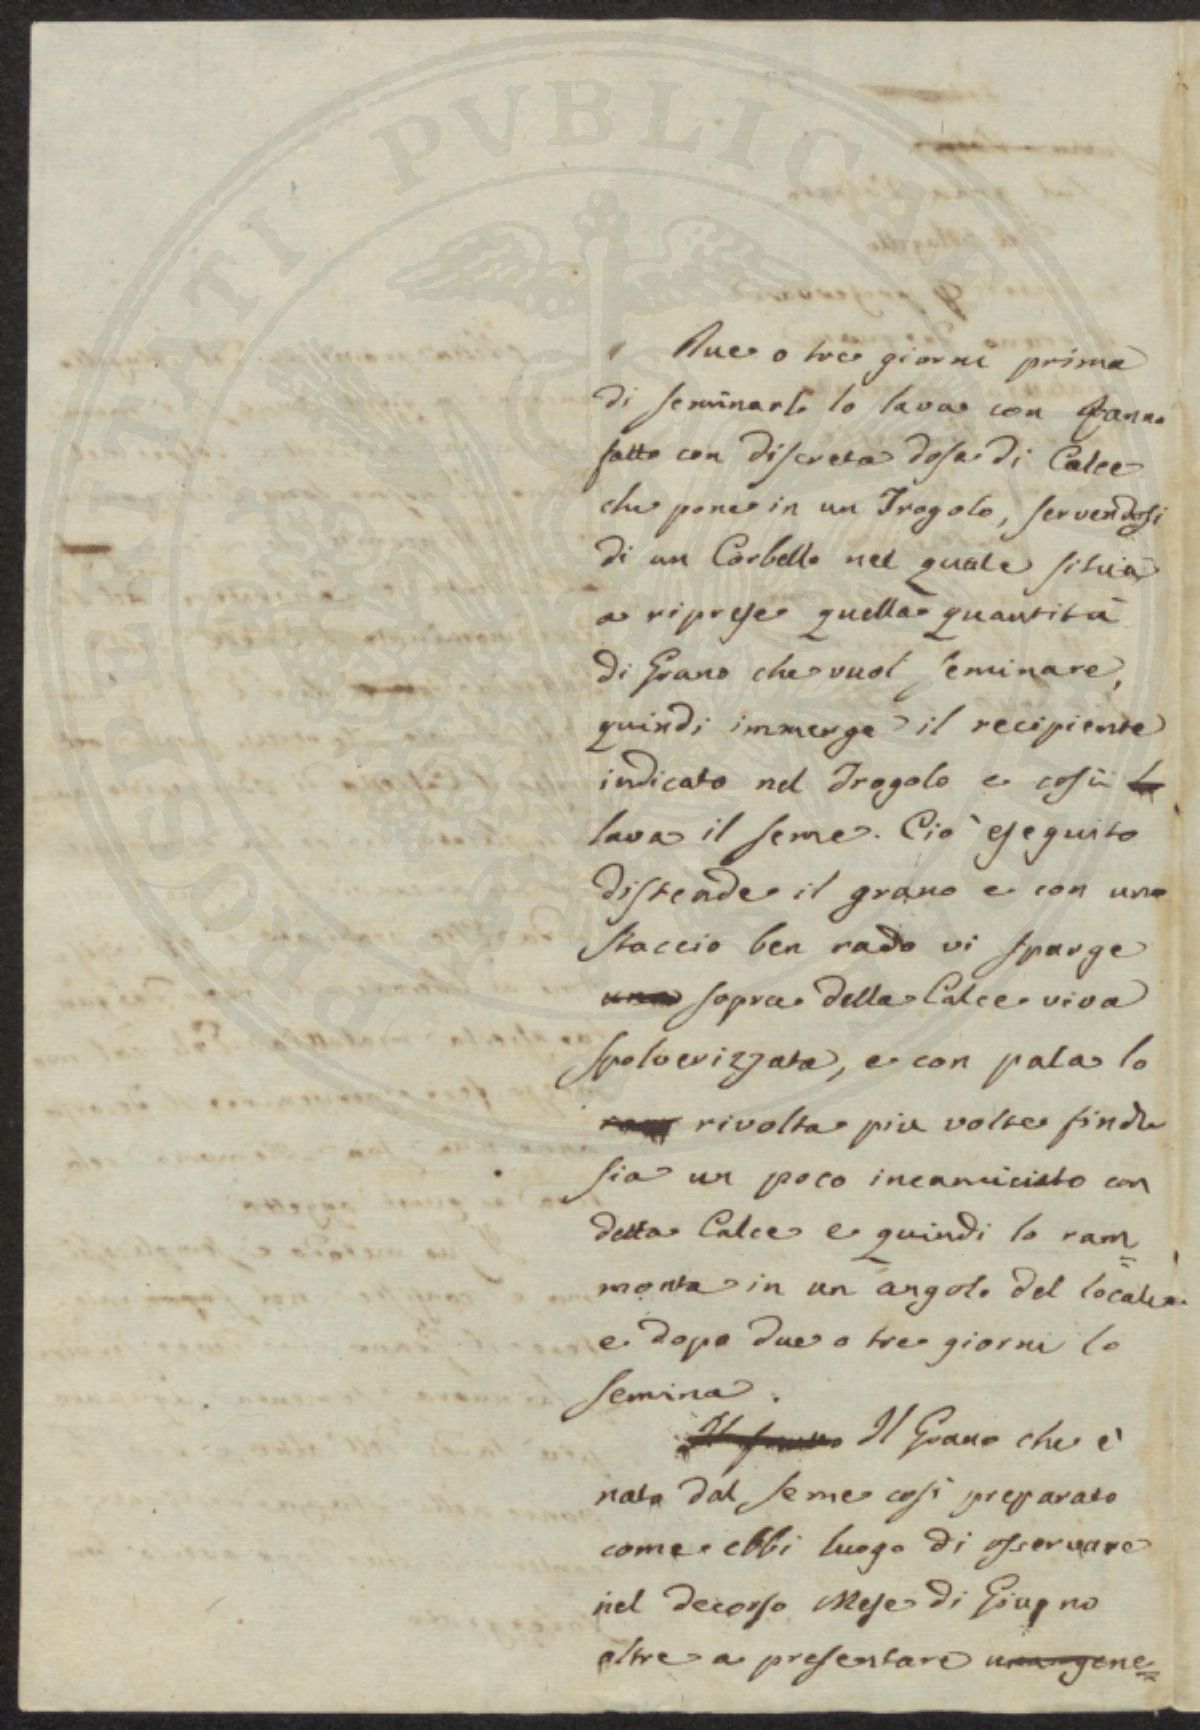 PROSPERITATI PUBLICAE
Due o tre giorni prima
di seminarlo lo lava con ranno
fatto con discreta dose di Calce
che pone in un Trogolo, servendosi
di un Corbello nel quale situa
a riprese quella quantità
di Grano che vuol seminare,
quindi immerge il recipiente
indicato nel Trogolo e così
lava il seme. Ciò eseguito
distende il grano e con uno
staccio ben rado vi sparge
una sopra della Calce viva
spolverizzata, e con pala lo
rivolta più volte finche
sia un poco incamiciato con
detta Calce e quindi lo ram=
monta in un angolo del locale
e dopo due o tre giorni lo
semina.
Il Grano che è
nato dal seme così preparato
come ebbi luogo di osservare
nel decorso Mese di Giugno
oltre a presentare una gene=